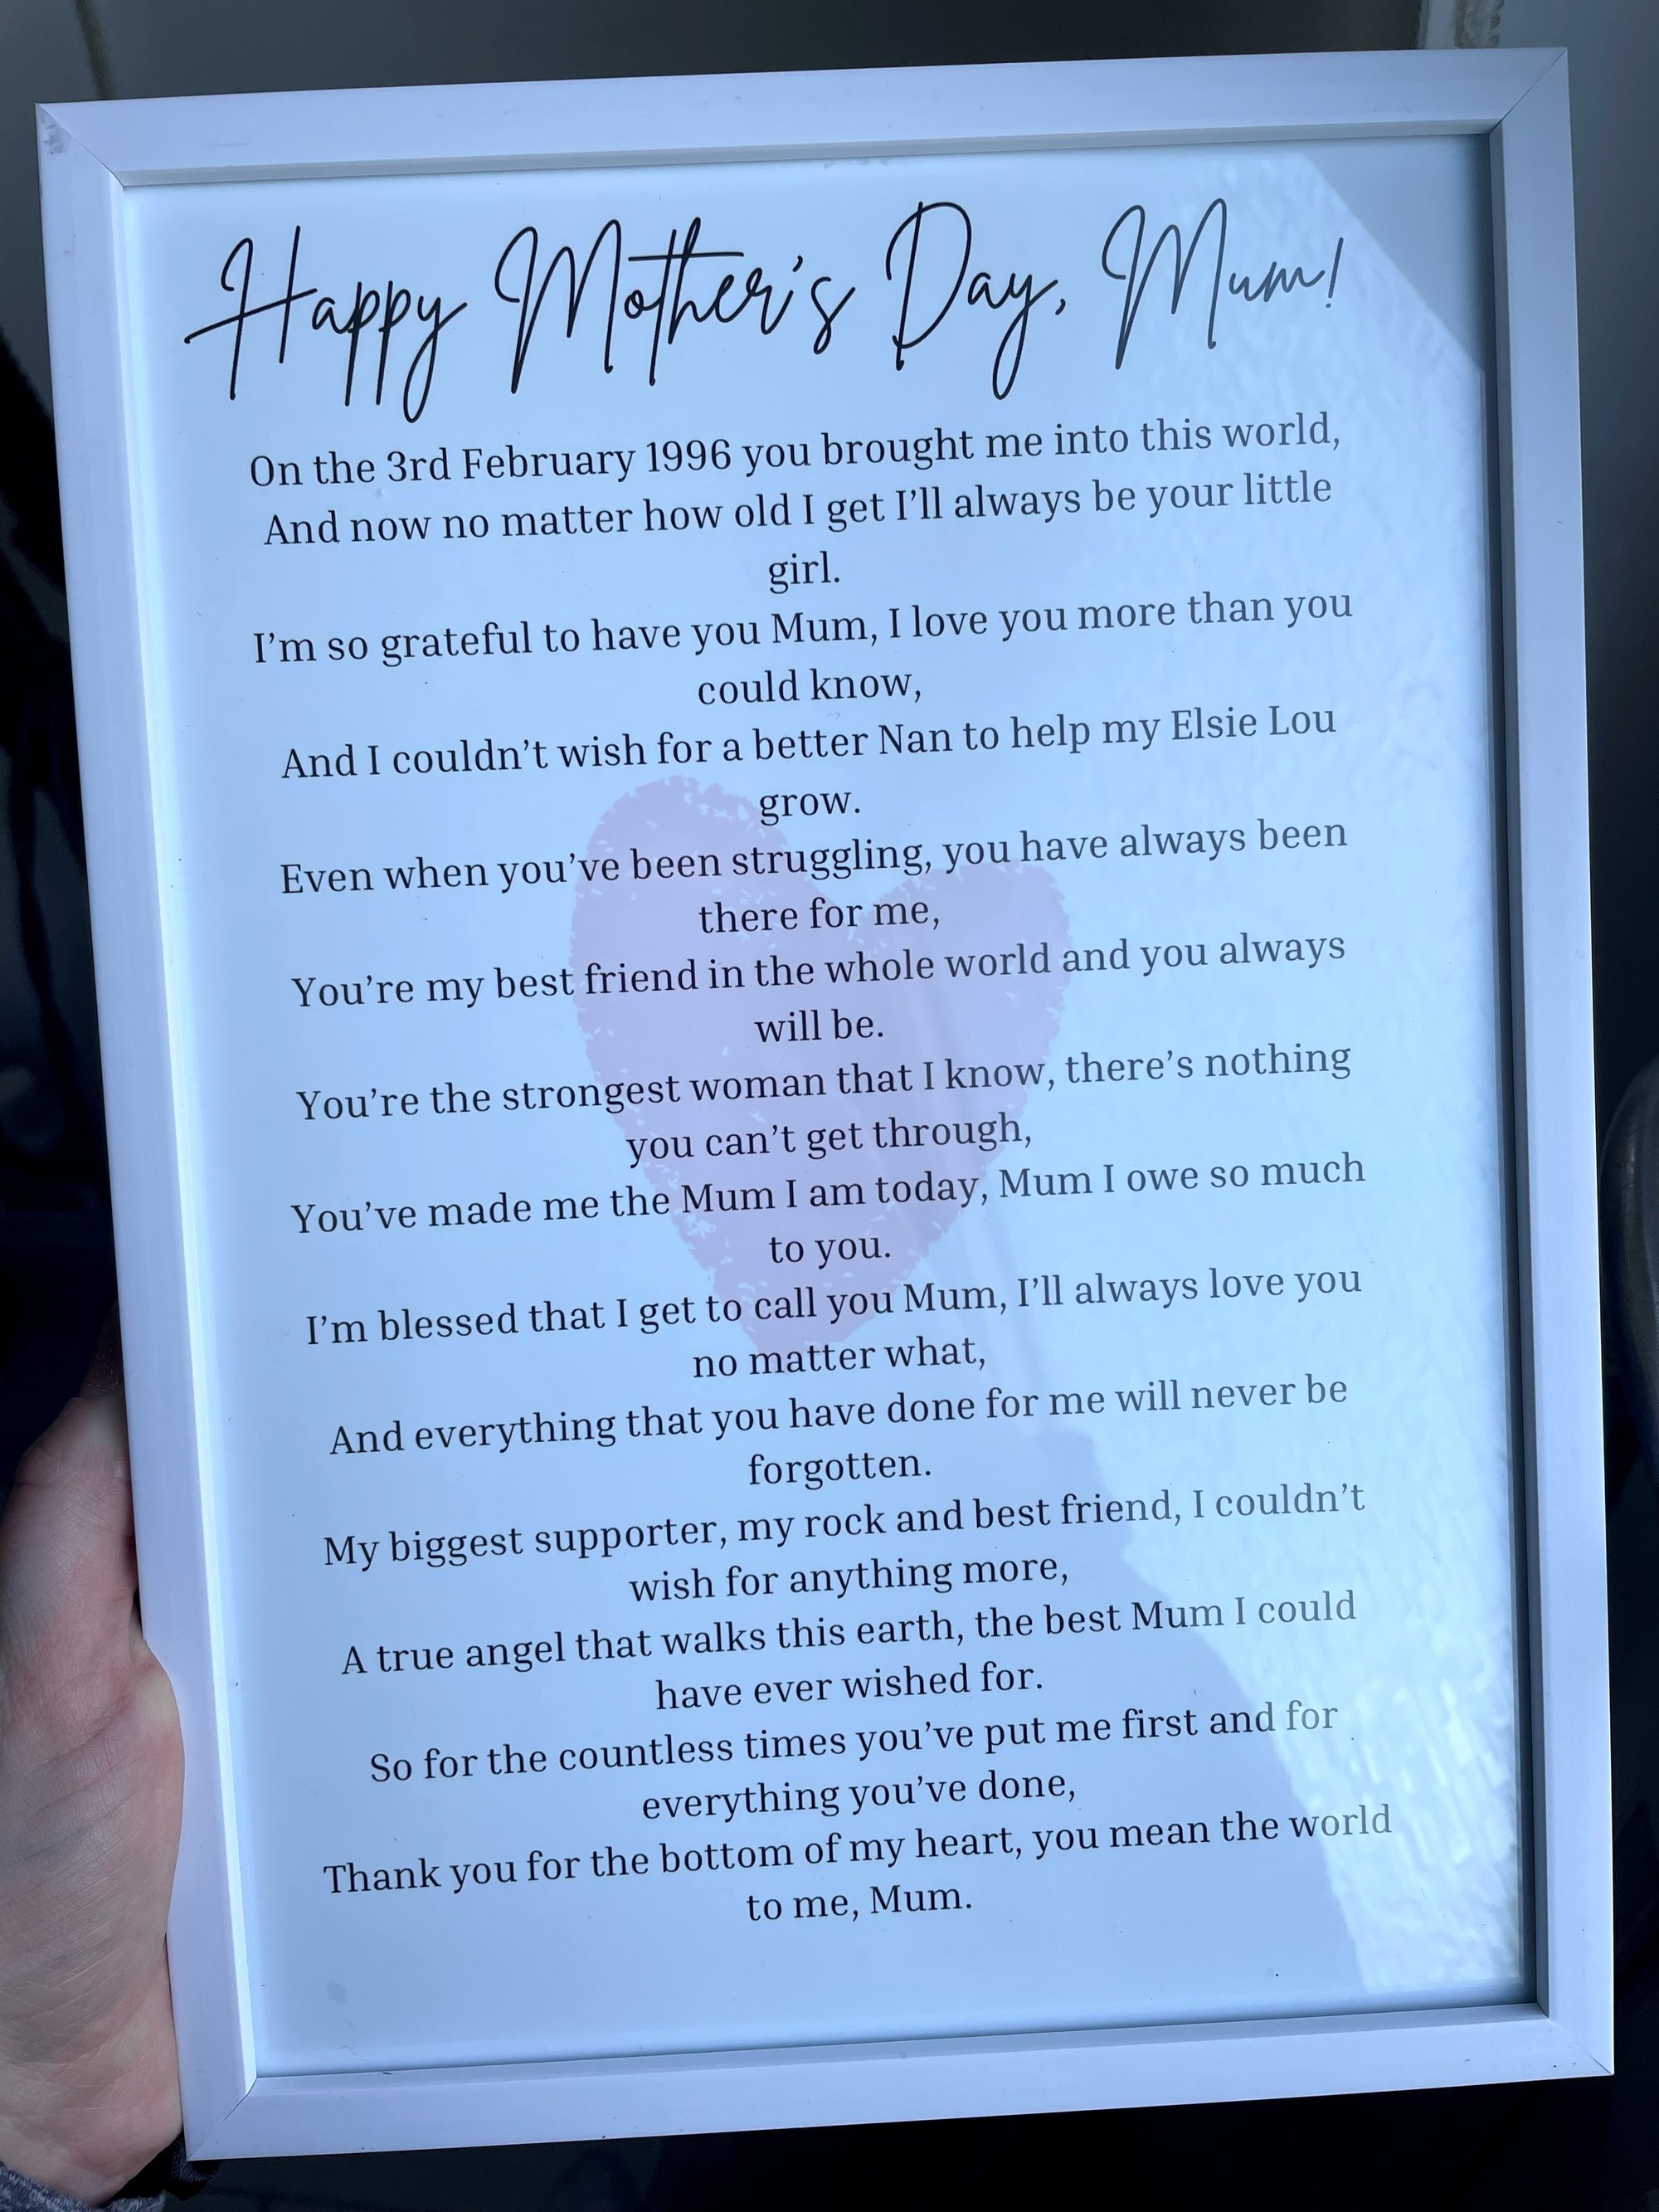 Happy Mother's Day, Mum!
On the 3rd February 1996 you brought me into this world,
And now no matter how old I get I'll always be your little
girl.
I'm so grateful to have you Mum, I love you more than you
could know,
And I couldn't wish for a better Nan to help my Elsie Lou
grow.
Even when you've been struggling, you have always been
there for me,
You're my best friend in the whole world and you always
will be.
You're the strongest woman that I know, there's nothing
you can't get through,
You've made me the Mum I am today, Mum I owe so much
to you.
I'm blessed that I get to call you Mum, I'll always love you
no matter what,
And everything that you have done for me will never be
forgotten.
My biggest supporter, my rock and best friend, I couldn't
wish for anything more,
A true angel that walks this earth, the best Mum I could
have ever wished for.
So for the countless times you've put me first and for
everything you've done,
Thank you for the bottom of my heart, you mean the world
to me, Mum.